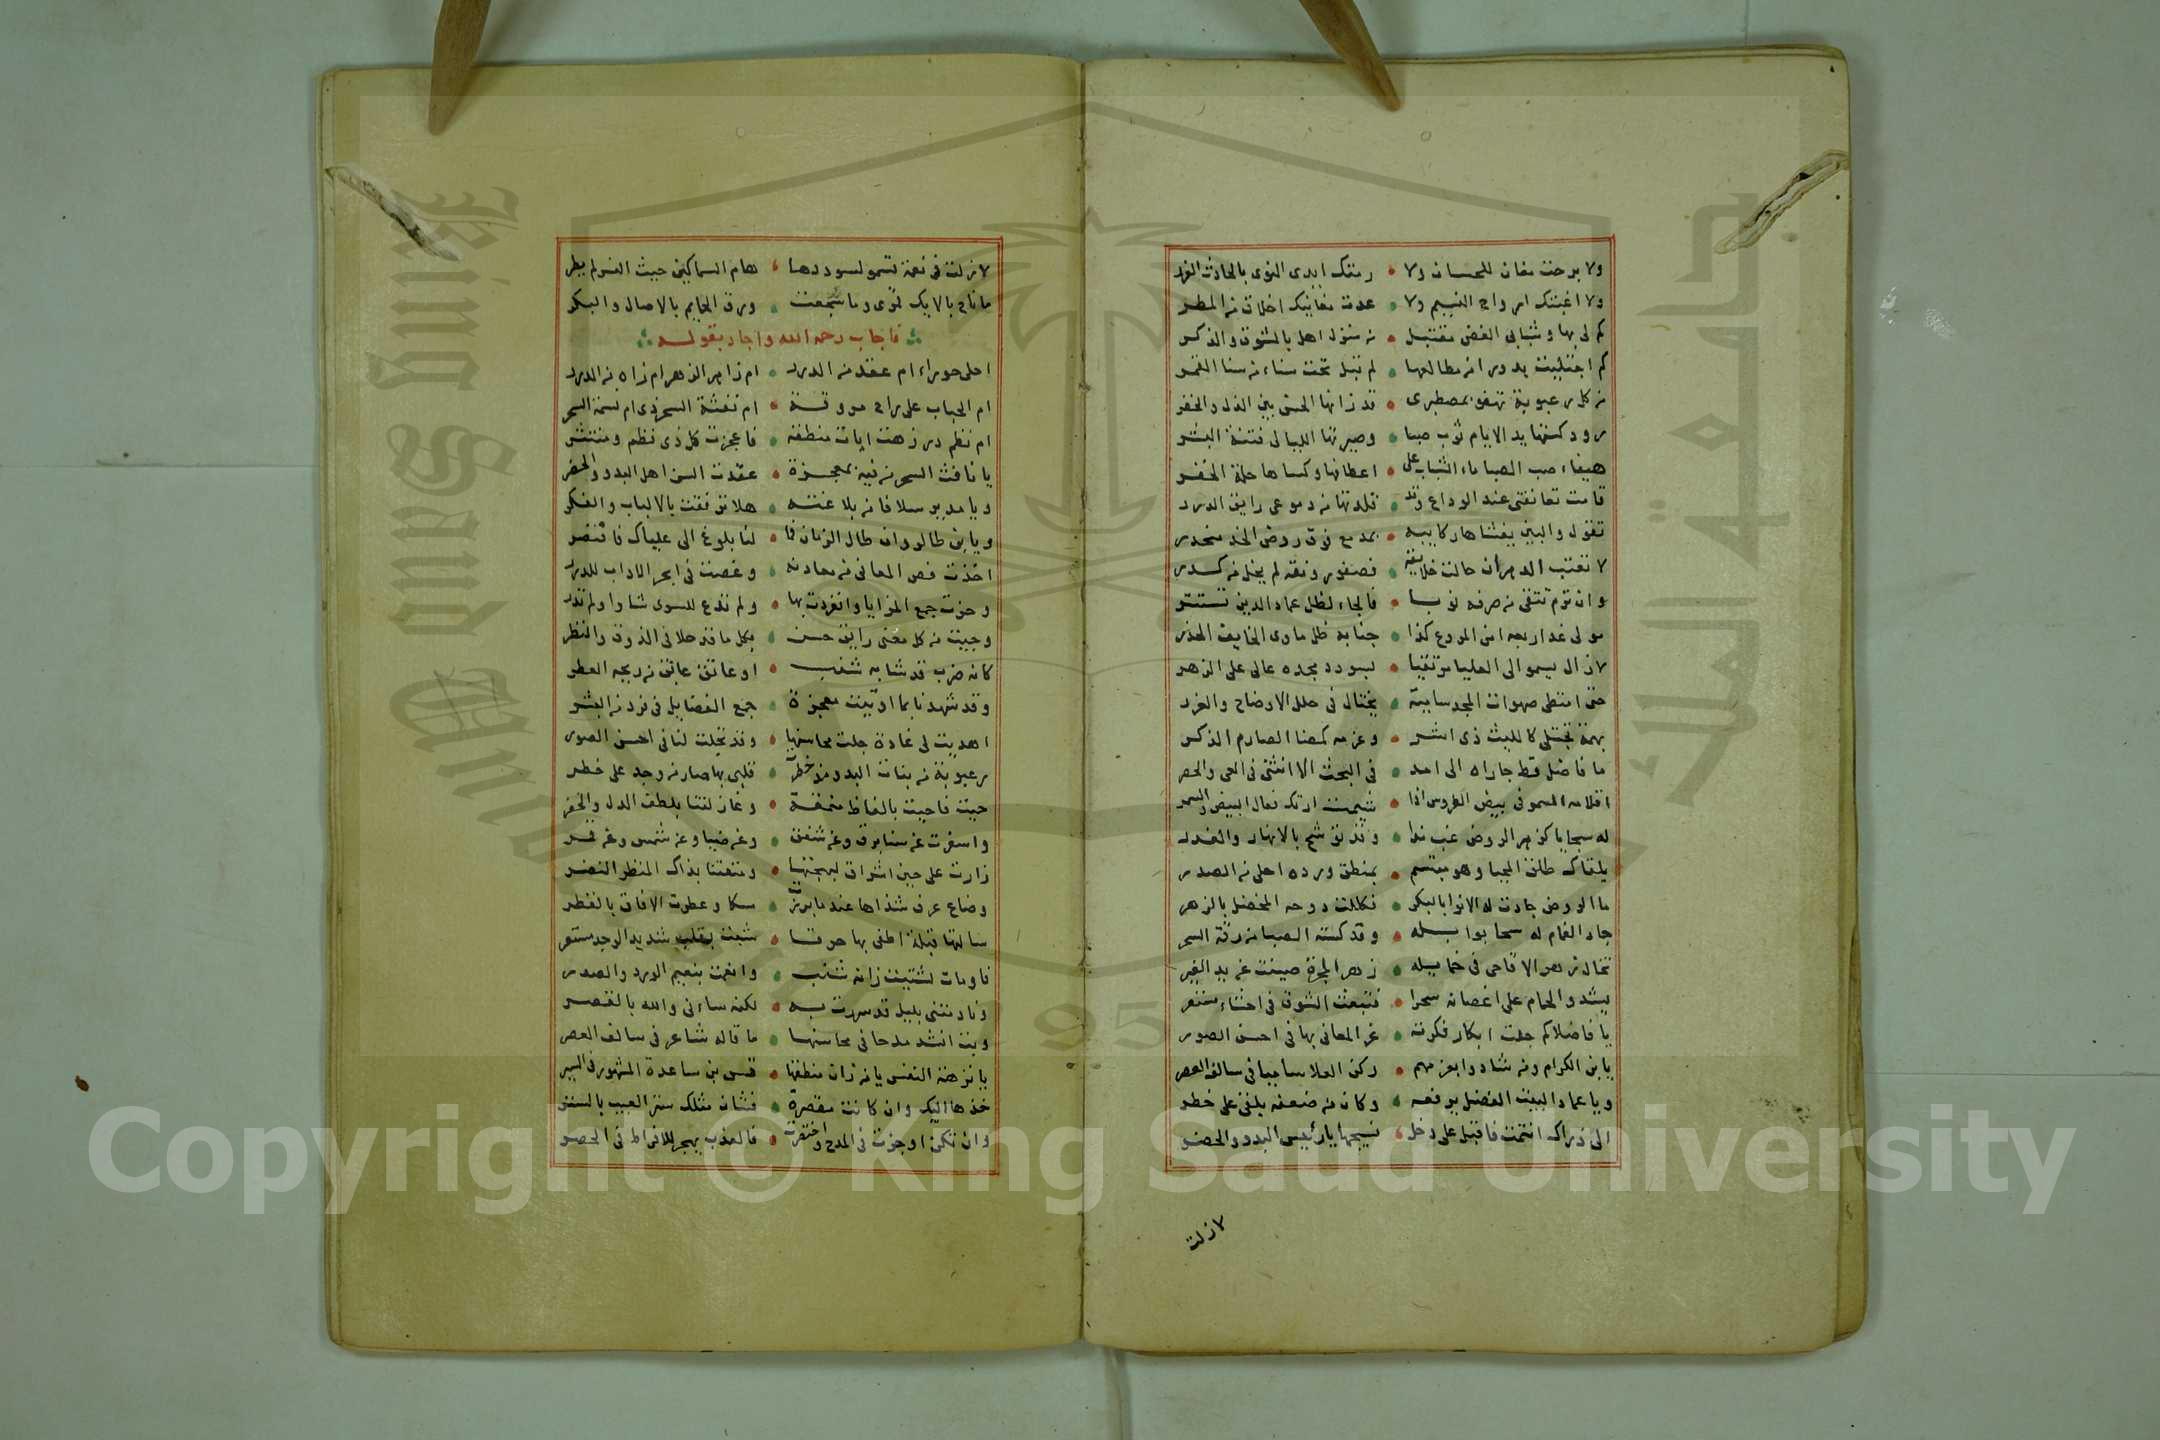 ولا برحت مغان للحسان ولا • رمتك ايدى النوى بالحادث النكد
ولا اغبتك ارواح النسيم ولا • عدت مغانيك اخلاق من المطر
كم لى بها وشبابى الغض مقتبل • من منزل اهل بالشوق والذكر
كم اجتليت بدورا من مطالعها • لم تبل تحت سناء من سنا القمر
من كل رعبوبة تهفو بمصطبرى • قد زانها الحسن بين الدل والخفر
رود كستها يد الايام ثوب صبا • وصيرتها الليالى فتنة البشر
هيفاء صب الصبا ماء الشباب على • اعطافها وكساها حلة الخفر
قامت تعانقنى عند الوداع وقد • قلدتها من دموعى رايق الدرر
تقول والبين يغشاها ركايبه • بمدمع فوق روض الخد منحدر
لا تعتب الدهر ان حالت خلايقه • فصفو رونقه لم يخل من كدر
وان ترم تتقى من صرفه نوبا • فالجاء لظل عماد الدين تستتر
مولى غدا ربعه امن المروع كذا • جنابه ظل ماوى الخايف الحذر
لا زال يسمو الى العليا مرتقيا • بسودد مجده عالى على الزهر
حتى امتطى صهوات المجد سابية • يختال فى حلل الاوضاح والغرر
بهمة تجتلى كالليث ذى اشر • وعزمه كمضا الصارم الذكر
ما فاضل قط جاراه الى امد • فى البحث الا انثنى فى العى والحصر
اقلامه السمر فى بيض الطروس اذا • شيمت ارتك فعال البيض والسمر
له سجايا كزهر الروض غب ندا • وقد توشح بالانهار والغدر
يلقاك طلق المحيا وهو مبتسم • بمنطق ورده احلى من الصدر
ما الروض جادت له الانوا بالبكر • فكللت دوحه المخضل بالزهر
جاد الغمام له سحا بوابله • وقد كسته الصبا من رقة السحر
تخال زهر الاقاحى فى خمايله • زهر المجرة صينت عن يد الغير
يشدو الحمام على اغصانه سحرا • فتبعث الشوق فى احشاء مستعر
يا فاضلا كم جلت ابكار فكرته • غر المعانى بها فى احسن الصور
يا بن الكرام ومن شادوا بعزمهم • ركن العلا ساميا فى سالف العصر
ويا عماد البيت الفضل يرفعه • وكان من ضعفه يلفى على خطر
الى ذراك انتمت فاقبل على دخل • نسيجها يا رئيس البدو والحضر
لا زلت
لا زلت فى نعمة تسمو لسوددها • هام السماكين حيث النسر لم يطر
ما ناح بالايك قمرى وما سجعت • ورق الحمايم بالاصال والبكر
فاجاب رحمه الله واجاد بقوله
احلى حوراء ام عقد من الدرر • ام زاهر الزهر ام زاه من الدرر
ام الحباب على راح مروقة • ام نفثة السحر ذى ام نسمة السحر
ام نظم در زهت ايات منطقه • فاعجزت كل ذى نظم ومنتثر
يا نافث السحر من فيه بمعجزة • عقدت السن اهل البدو والحضر
ويا مدير سلافا من بلاغته • هلا ترفقت بالالباب والفكر
ويا بن طالو وان طال الزمان فما • لنا بلوغ الى علياك فاقتصر
اخذت فص المعانى من معادنه • وغصت فى ابحر الاداب للدرر
وحزت جمع المزايا وانفردت بها • ولم تدع للسوى شاوا ولم تذر
وجيت من كل معنى رايق حسن • بكل ما قد حلا فى الذوق والنظر
كانه ضرب قد شابه شنب • او عاتق عابق من ريحه العطر
وقد شهدنا بما اوتيت معجزة • جمع الفضايل فى فرد من البشر
اهديت لى غادة جلت محاسنها • وقد تجلت لنا فى احسن الصور
رعبوبة من بنات البدو مذ خطرت • قلبى بها صار من وجد على خطر
حيت فاحيت بالفاظ منمقة • وغازلتنا بلطف الدل والخفر
واسفرت عن سنا برق وعن شفق • وعن ضيا وعن شمس وعن قمر
زارت على حين اشراق لبهجتها • ومتعتنا بذاك المنظر النضر
وضاع عرف شذاها عندما برزت • مسكا وعطرت الافاق بالقطر
سالتها قبلة اطفى بها حرقا • شبت بقلب شديد الوجد مستعر
فاومات لشتيت زانه شنب • وانعمت بنعيم الورد والصدر
ونادمتنى بليل قد سهرت به • لكنه ساءنى والله بالقصر
وبت انشد مدحا فى محاسنها • ما قاله شاعر فى سالف العصر
يا نزهة النفس يا من زان منطقها • قس بن ساعدة المشهور فى السير
خذها اليك وان كانت مقصرة • فشان مثلك ستر العيب بالستر
وان تكن اوجزت فى المدح واختصرت • فالعذب يهجر للافراط فى الخصر
Copyright © King Saud University